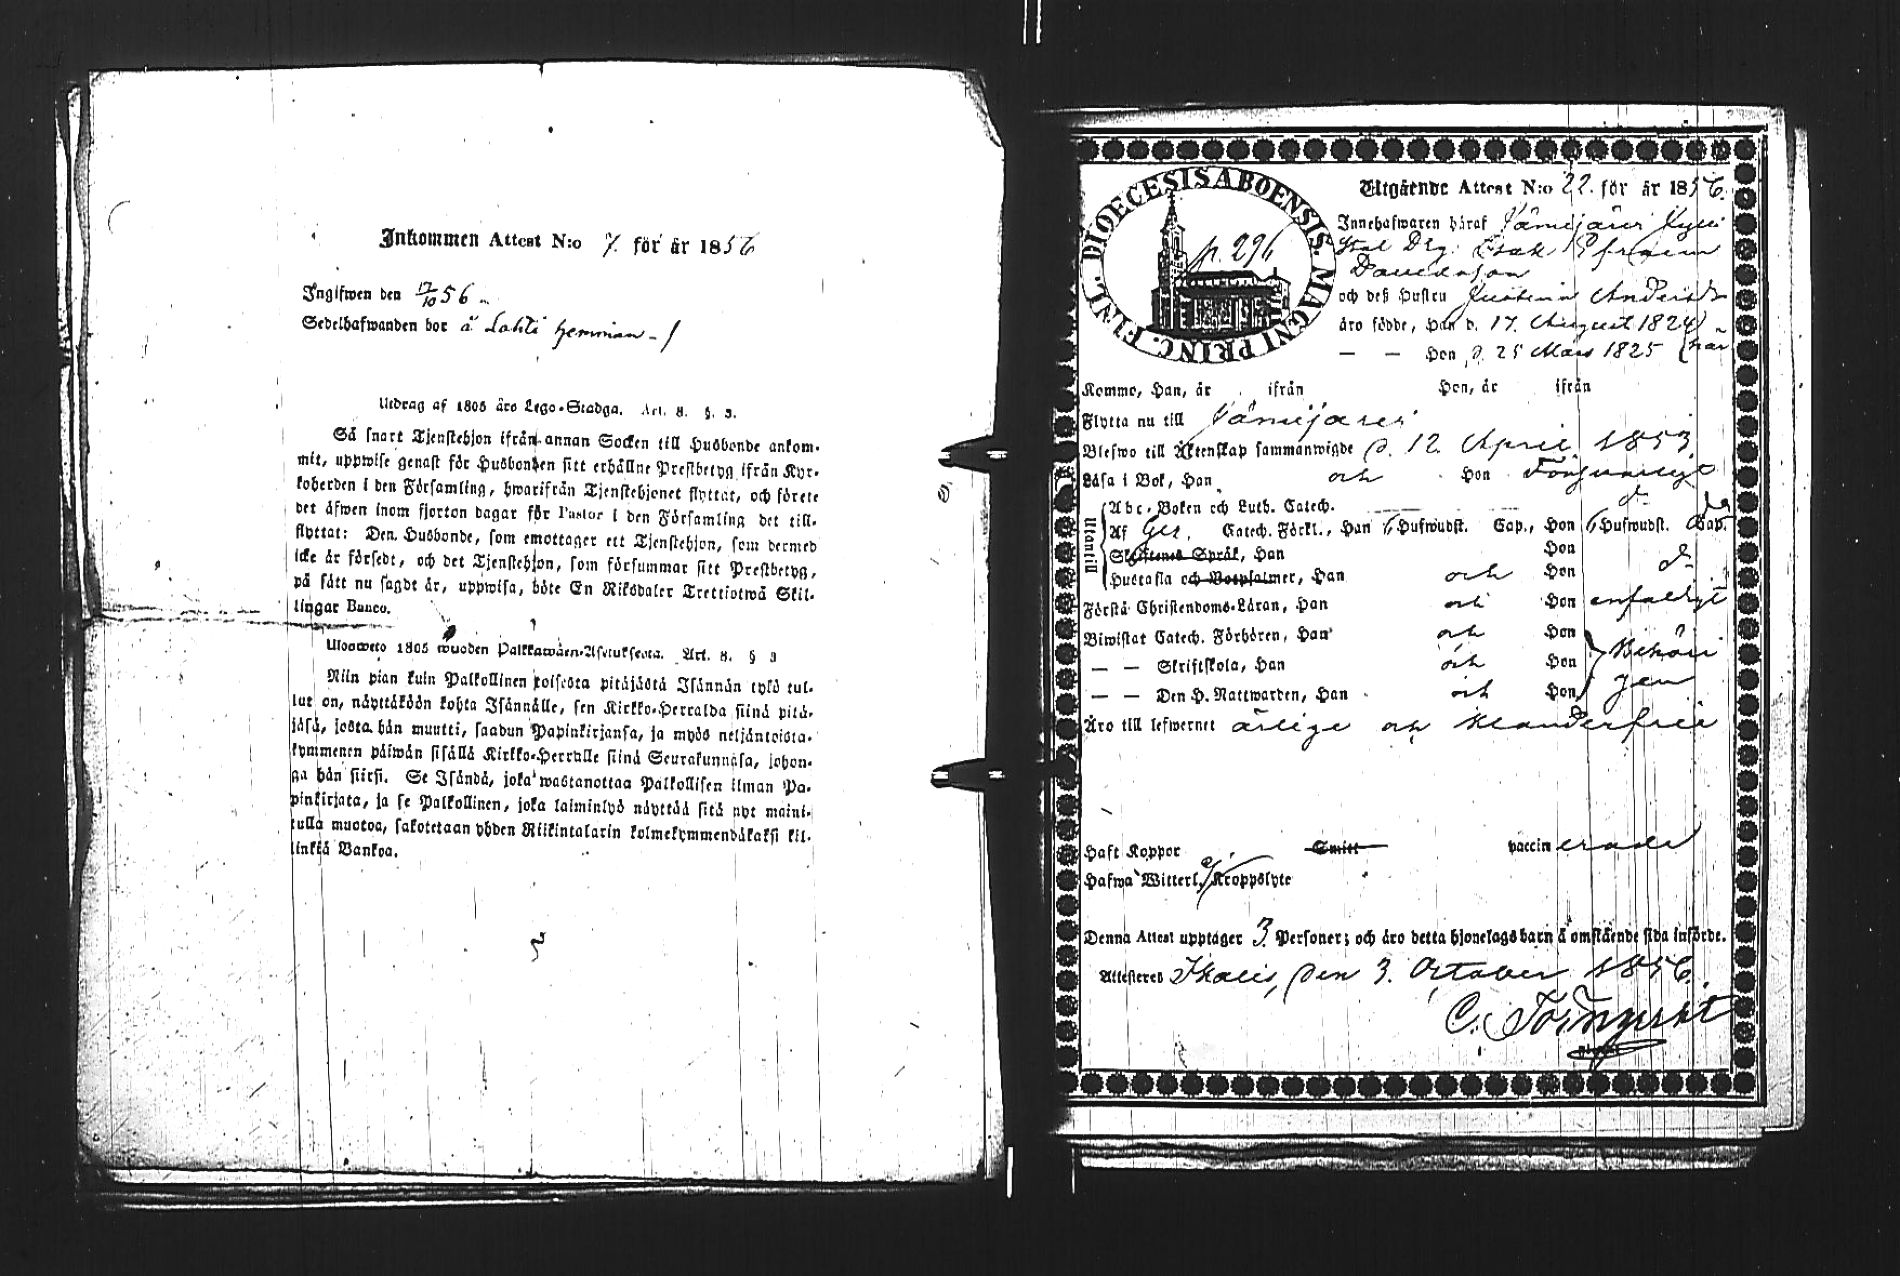 Inkommen Attest N:o 7. för år 1856
Ingifwen den 17/10 56
Sedelhafwanden bor å Lahti hemman
Utdrag af 1805 åro Lego-Stadga. Art. 8. §. 3.
Så snart Tjenstehjon ifrån annan Socken till Husbonde ankom-
mit, uppwise genast för Husbonden sitt erhållne Prestbetyg ifrån Kyr-
koherden i den Församling, hwarifrån Tjenstehjonet flyttat, och förete
det äfwen inom fjorton dagar för Pastor i den Församling det till-
flyttat: Den Husbonde, som emottager ett Tjenstehjon, som dermed
icke är försedt, och det Tjenstehjon, som försummar sitt Prestbetyg,
på sätt nu sagdt är, uppwisa, böte En Riksdaler Trettiotwå Skil-
lingar Banco.
Uloosweto 1805 wuoden Palkkawäen-Asetuksesta. Art. 8. § 3
Niin pian kuin Palkollinen toisesta pitäjästä Isännän tykö tul-
lut on, näyttäköön kohta Isännälle, sen Kirkko-Herralda siinä pitä-
jäsä, josta hän muutti, saadun Papinkirjansa, ja myös neljäntoista-
kymmenen päiwän sisällä Kirkko-Herralle siinä Seurakunnasa, johon-
ga hän siirsi. Se Isändä, joka wastanottaa Palkollisen ilman Pa-
pinkirjata, ja se Palkollinen, joka laiminlyö näyttää sitä nyt maini-
tulla muotoa, sakotetaan yhden Riikintalarin kolmekymmendäkaksi kil-
linkiä Bankoa.
DIOECESIS ABOENSIS. MAGNI PRINC. FINL.
p. 296
Utgående Attest N:o 22. för år 1856.
Innehafwaren häraf Jämijärvi
Drg. Isak Efraim
Davidsson
och deß Hustru Justina Andersdr
äro födde, Han d. 17. August 1824
— — Hon d. 25 Mars 1825 här
Komme, Han, år ifrån Hon, år ifrån
Flytta nu till Jämijärvi
Blefwo till Äktenskap sammanwigde d. 12. April 1853.
Läsa i Bok, Han och Hon Försvarligt
Utantill
Abc-Boken och Luth. Catech. do
Af Ger. Catech. Förkl., Han 6 Hufwudst. Cap., Hon 6 Hufwudst. Cap.
Skriftenes Språk, Han Hon
Hustafla och Botpsalmer, Han och Hon do
Förstå Christendoms-Läran, Han och Hon enfaldigt
Biwistat Catech. Förhören, Han och Hon
— — Skriftskola, Han och Hon Behöri
— — Den H. Nattwarden, Han och Hon gen
Äro till lefwernet ärlige och klanderfrie
Haft Koppor Smitt vaccinerade
Hafwa Witterl. ej Kroppslyte
Denna Attest upptager 3. Personer; och äro detta hjonelags barn å omstående sida införde.
Attesteres Ikalis, den 3. October 1856.
C. Törnqvist